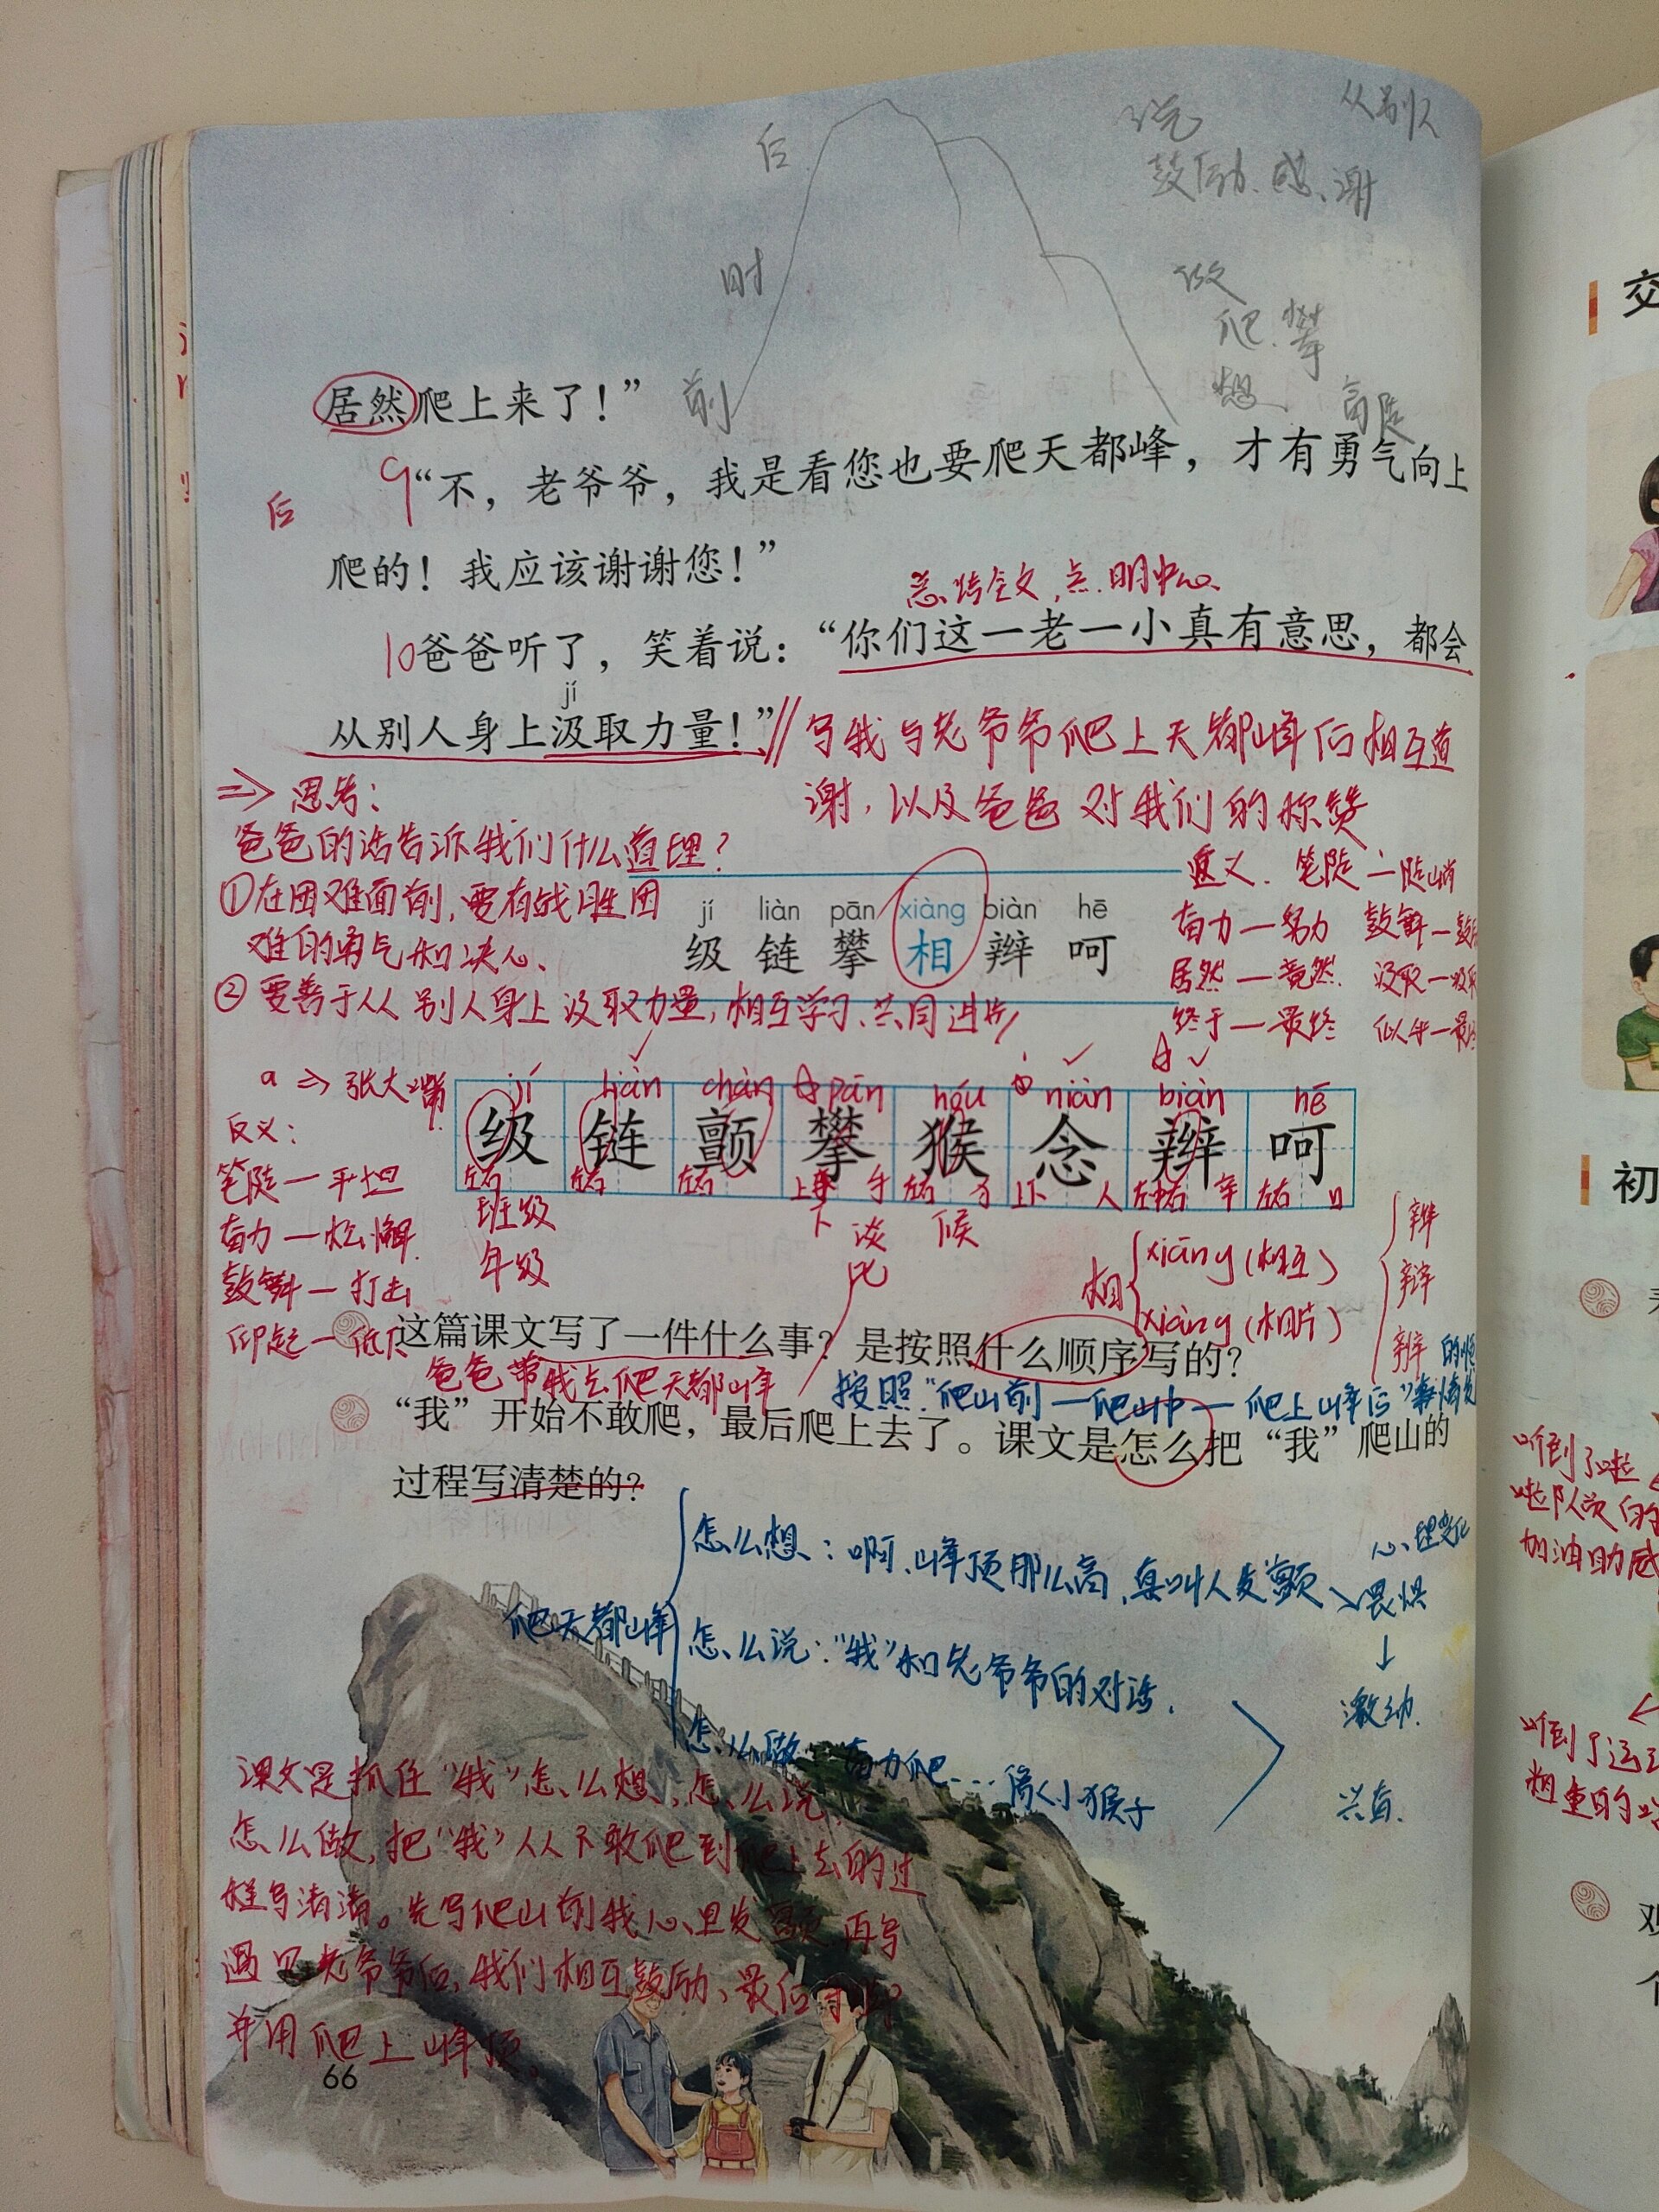 从别人
说
鼓励、感谢
后
时
做
爬、攀
想
前
居然爬上来了！”
后
9“不，老爷爷，我是看您也要爬天都峰，才有勇气向上
爬的！我应该谢谢您！”
总结全文，点明中心
10爸爸听了，笑着说：“你们这一老一小真有意思，都会
jí
从别人身上汲取力量！”
写我与老爷爷爬上天都峰后相互道
谢，以及爸爸对我们的称赞
⇒思考：
爸爸的话告诉我们什么道理？
①在困难面前，要有战胜困
难的勇气和决心、
②要善于从别人身上汲取力量，相互学习、共同进步
jí liàn pān xiàng biàn hē
级 链 攀 相 辫 呵
笔陡—陡峭
奋力—努力
居然—竟然 汲取—吸取
终于—最终
a⇒张大嘴
反义：
笔陡—平坦
奋力—松懈
鼓舞—打击
jí liàn chàn pān hóu niàn biàn hē
级 链 颤 攀 猴 念 辫 呵
左右 左右 左右 手 左右 上下 人 左中右 辛 左右 口
班级
年级
候
相
xiāng（相互）
xiàng（相片）
辫
辩
辨
这篇课文写了一件什么事？是按照什么顺序写的？
爸爸带我去爬天都峰
按照“爬山前—爬山中—爬上峰后”
“我”开始不敢爬，最后爬上去了。课文是怎么把“我”爬山的
过程写清楚的？
爬天都峰
怎么想：啊、峰顶那么高，真叫人发颤
怎么说：“我”和老爷爷的对话.
怎么做 奋力爬…像小猴子
心理变化
畏惧
↓
激动.
课文是抓住“我”怎么想，怎么说，
怎么做，把“我”从不敢爬到爬上去的过
程写清楚。先写爬山前我心里发颤 再写
遇见老爷爷后，我们相互鼓励、最后
爬上峰顶。
66
交
初
听到了啦
啦队员的
加油助威
听到了运
粗重的